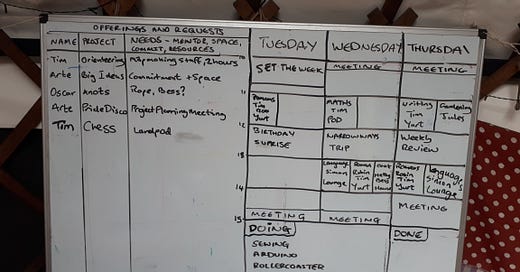 OFFERINGS AND REQUESTS
NAME PROJECT NEEDS - MENTOR, SPACE,
COMMIT, RESOURCES
Tim Orienteering Mapmaking staff, 2 hours
Arte Big Ideas Commitment + Space
Oscar Knots Rope, Bess?
Arte Pride Disco Project Planning Meeting
Tim Chess Landpad
TUESDAY WEDNESDAY THURSDAY
SET THE WEEK MEETING MEETING
11
Tim
Yurt
MATHS
TIM
POD
Writing
Tim
Yurt
Gardening
Jules
12
BIRTHDAY
SUPRISE
NARROWWAYS
TRIP
Weekly
Review
13
Language
Simon
Lounge
Robin
Tim
Yurt
Robin
Tim
Yurt
Language
Simon
Lounge
14
MEETING
15
MEETING MEETING
DOING DONE
SEWING
ARDUINO
ROLLERCOASTER